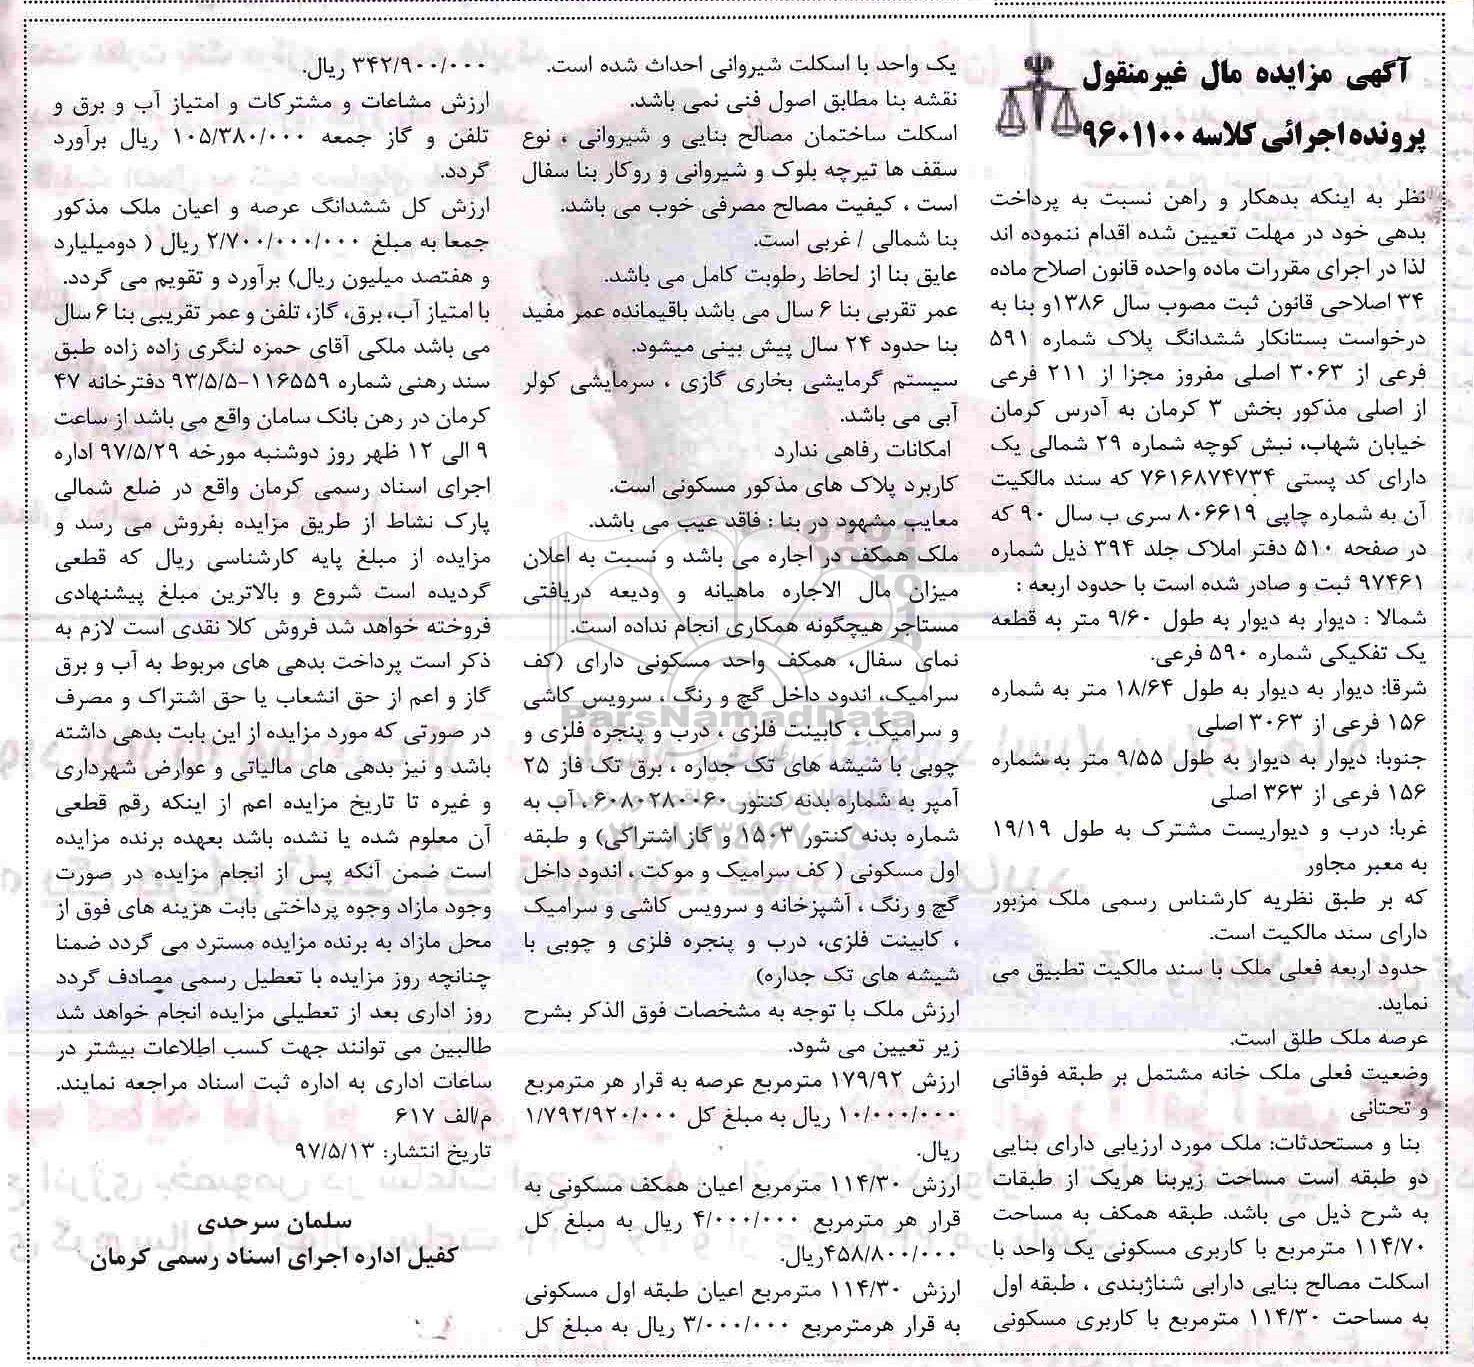 آگهی مزایده مال غیرمنقول
پرونده اجرائی کلاسه ۹۶۰۱۱۰۰
نظر به اینکه بدهکار و راهن نسبت به پرداخت
بدهی خود در مهلت تعیین شده اقدام ننموده اند
لذا در اجرای مقررات ماده واحده قانون اصلاح ماده
۳۴ اصلاحی قانون ثبت مصوب سال ۱۳۸۶و بنا به
درخواست بستانکار ششدانگ پلاک شماره ۵۹۱
فرعی از ۳۰۶۳ اصلی مفروز مجزا از ۲۱۱ فرعی
از اصلی مذکور بخش ۳ کرمان به آدرس کرمان
خیابان شهاب، نبش کوچه شماره ۲۹ شمالی یک
دارای کد پستی ۷۶۱۶۸۷۴۷۳۴ که سند مالکیت
آن به شماره چاپی ۸۰۶۶۱۹ سری ب سال ۹۰ که
در صفحه ۵۱۰ دفتر املاک جلد ۳۹۴ ذیل شماره
۹۷۴۶۱ ثبت و صادر شده است با حدود اربعه :
شمالا : دیوار به دیوار به طول ۹/۶۰ متر به قطعه
یک تفکیکی شماره ۵۹۰ فرعی.
شرقا: دیوار به دیوار به طول ۱۸/۶۴ متر به شماره
۱۵۶ فرعی از ۳۰۶۳ اصلی
جنوبا: دیوار به دیوار به طول ۹/۵۵ متر به شماره
۱۵۶ فرعی از ۳۶۳ اصلی
غربا: درب و دیواریست مشترک به طول ۱۹/۱۹
به معبر مجاور
که بر طبق نظریه کارشناس رسمی ملک مزبور
دارای سند مالکیت است.
حدود اربعه فعلی ملک با سند مالکیت تطبیق می
نماید.
عرصه ملک طلق است.
وضعیت فعلی ملک خانه مشتمل بر طبقه فوقانی
و تحتانی
بنا و مستحدثات: ملک مورد ارزیابی دارای بنایی
دو طبقه است مساحت زیربنا هریک از طبقات
به شرح ذیل می باشد. طبقه همکف به مساحت
۱۱۴/۷۰ مترمربع با کاربری مسکونی یک واحد با
اسکلت مصالح بنایی دارایی شناژبندی ، طبقه اول
به مساحت ۱۱۴/۳۰ مترمربع با کاربری مسکونی
یک واحد با اسکلت شیروانی احداث شده است.
نقشه بنا مطابق اصول فنی نمی باشد.
اسکلت ساختمان مصالح بنایی و شیروانی ، نوع
سقف ها تیرچه بلوک و شیروانی و روکار بنا سفال
است ، کیفیت مصالح مصرفی خوب می باشد.
بنا شمالی / غربی است.
عایق بنا از لحاظ رطوبت کامل می باشد.
عمر تقربی بنا ۶ سال می باشد باقیمانده عمر مفید
بنا حدود ۲۴ سال پیش بینی میشود.
سیستم گرمایشی بخاری گازی ، سرمایشی کولر
آبی می باشد.
امکانات رفاهی ندارد
کاربرد پلاک های مذکور مسکونی است.
معایب مشهود در بنا : فاقد عیب می باشد.
ملک همکف در اجاره می باشد و نسبت به اعلان
میزان مال الاجاره ماهیانه و ودیعه دریافتی
مستاجر هیچگونه همکاری انجام نداده است.
نمای سفال، همکف واحد مسکونی دارای (کف
سرامیک، اندود داخل گچ و رنگ ، سرویس کاشی
و سرامیک ، کابینت فلزی ، درب و پنجره فلزی و
چوبی با شیشه های تک جداره ، برق تک فاز ۲۵
آمپر به شماره بدنه کنتور ۶۰۸۰۲۸۰۰۶۰ ، آب به
شماره بدنه کنتور ۱۵۰۳ و گاز اشتراکی) و طبقه
اول مسکونی ( کف سرامیک و موکت ، اندود داخل
گچ و رنگ ، آشپزخانه و سرویس کاشی و سرامیک
، کابینت فلزی، درب و پنجره فلزی و چوبی با
شیشه های تک جداره)
ارزش ملک با توجه به مشخصات فوق الذکر بشرح
زیر تعیین می شود.
ارزش ۱۷۹/۹۲ مترمربع عرصه به قرار هر مترمربع
۱۰/۰۰۰/۰۰۰ ریال به مبلغ کل ۱/۷۹۲/۹۲۰/۰۰۰
ریال.
ارزش ۱۱۴/۳۰ مترمربع اعیان همکف مسکونی به
قرار هر مترمربع ۴/۰۰۰/۰۰۰ ریال به مبلغ کل
۴۵۸/۸۰۰/۰۰۰ریال.
ارزش ۱۱۴/۳۰ مترمربع اعیان طبقه اول مسکونی
به قرار هرمترمربع ۳/۰۰۰/۰۰۰ ریال به مبلغ کل
۳۴۲/۹۰۰/۰۰۰ ریال.
ارزش مشاعات و مشترکات و امتیاز آب و برق و
تلفن و گاز جمعه ۱۰۵/۳۸۰/۰۰۰ ریال برآورد
گردد.
ارزش کل ششدانگ عرصه و اعیان ملک مذکور
جمعا به مبلغ ۲/۷۰۰/۰۰۰/۰۰۰ ریال ( دومیلیارد
و هفتصد میلیون ریال) برآورد و تقویم می گردد.
با امتیاز آب، برق، گاز، تلفن و عمر تقریبی بنا ۶ سال
می باشد ملکی آقای حمزه لنگری زاده زاده طبق
سند رهنی شماره ۱۱۶۵۵۹-۹۳/۵/۵ دفترخانه ۴۷
کرمان در رهن بانک سامان واقع می باشد از ساعت
۹ الی ۱۲ ظهر روز دوشنبه مورخه ۹۷/۵/۲۹ اداره
اجرای اسناد رسمی کرمان واقع در ضلع شمالی
پارک نشاط از طریق مزایده بفروش می رسد و
مزایده از مبلغ پایه کارشناسی ریال که قطعی
گردیده است شروع و بالاترین مبلغ پیشنهادی
فروخته خواهد شد فروش کلا نقدی است لازم به
ذکر است پرداخت بدهی های مربوط به آب و برق
گاز و اعم از حق انشعاب یا حق اشتراک و مصرف
در صورتی که مورد مزایده از این بابت بدهی داشته
باشد و نیز بدهی های مالیاتی و عوارض شهرداری
و غیره تا تاریخ مزایده اعم از اینکه رقم قطعی
آن معلوم شده یا نشده باشد بعهده برنده مزایده
است ضمن آنکه پس از انجام مزایده در صورت
وجود مازاد وجوه پرداختی بابت هزینه های فوق از
محل مازاد به برنده مزایده مسترد می گردد ضمنا
چنانچه روز مزایده با تعطیل رسمی مصادف گردد
روز اداری بعد از تعطیلی مزایده انجام خواهد شد
طالبین می توانند جهت کسب اطلاعات بیشتر در
ساعات اداری به اداره ثبت اسناد مراجعه نمایند.
م/الف ۶۱۷
تاریخ انتشار: ۹۷/۵/۱۳
سلمان سرحدی
کفیل اداره اجرای اسناد رسمی کرمان
ParsNamadData